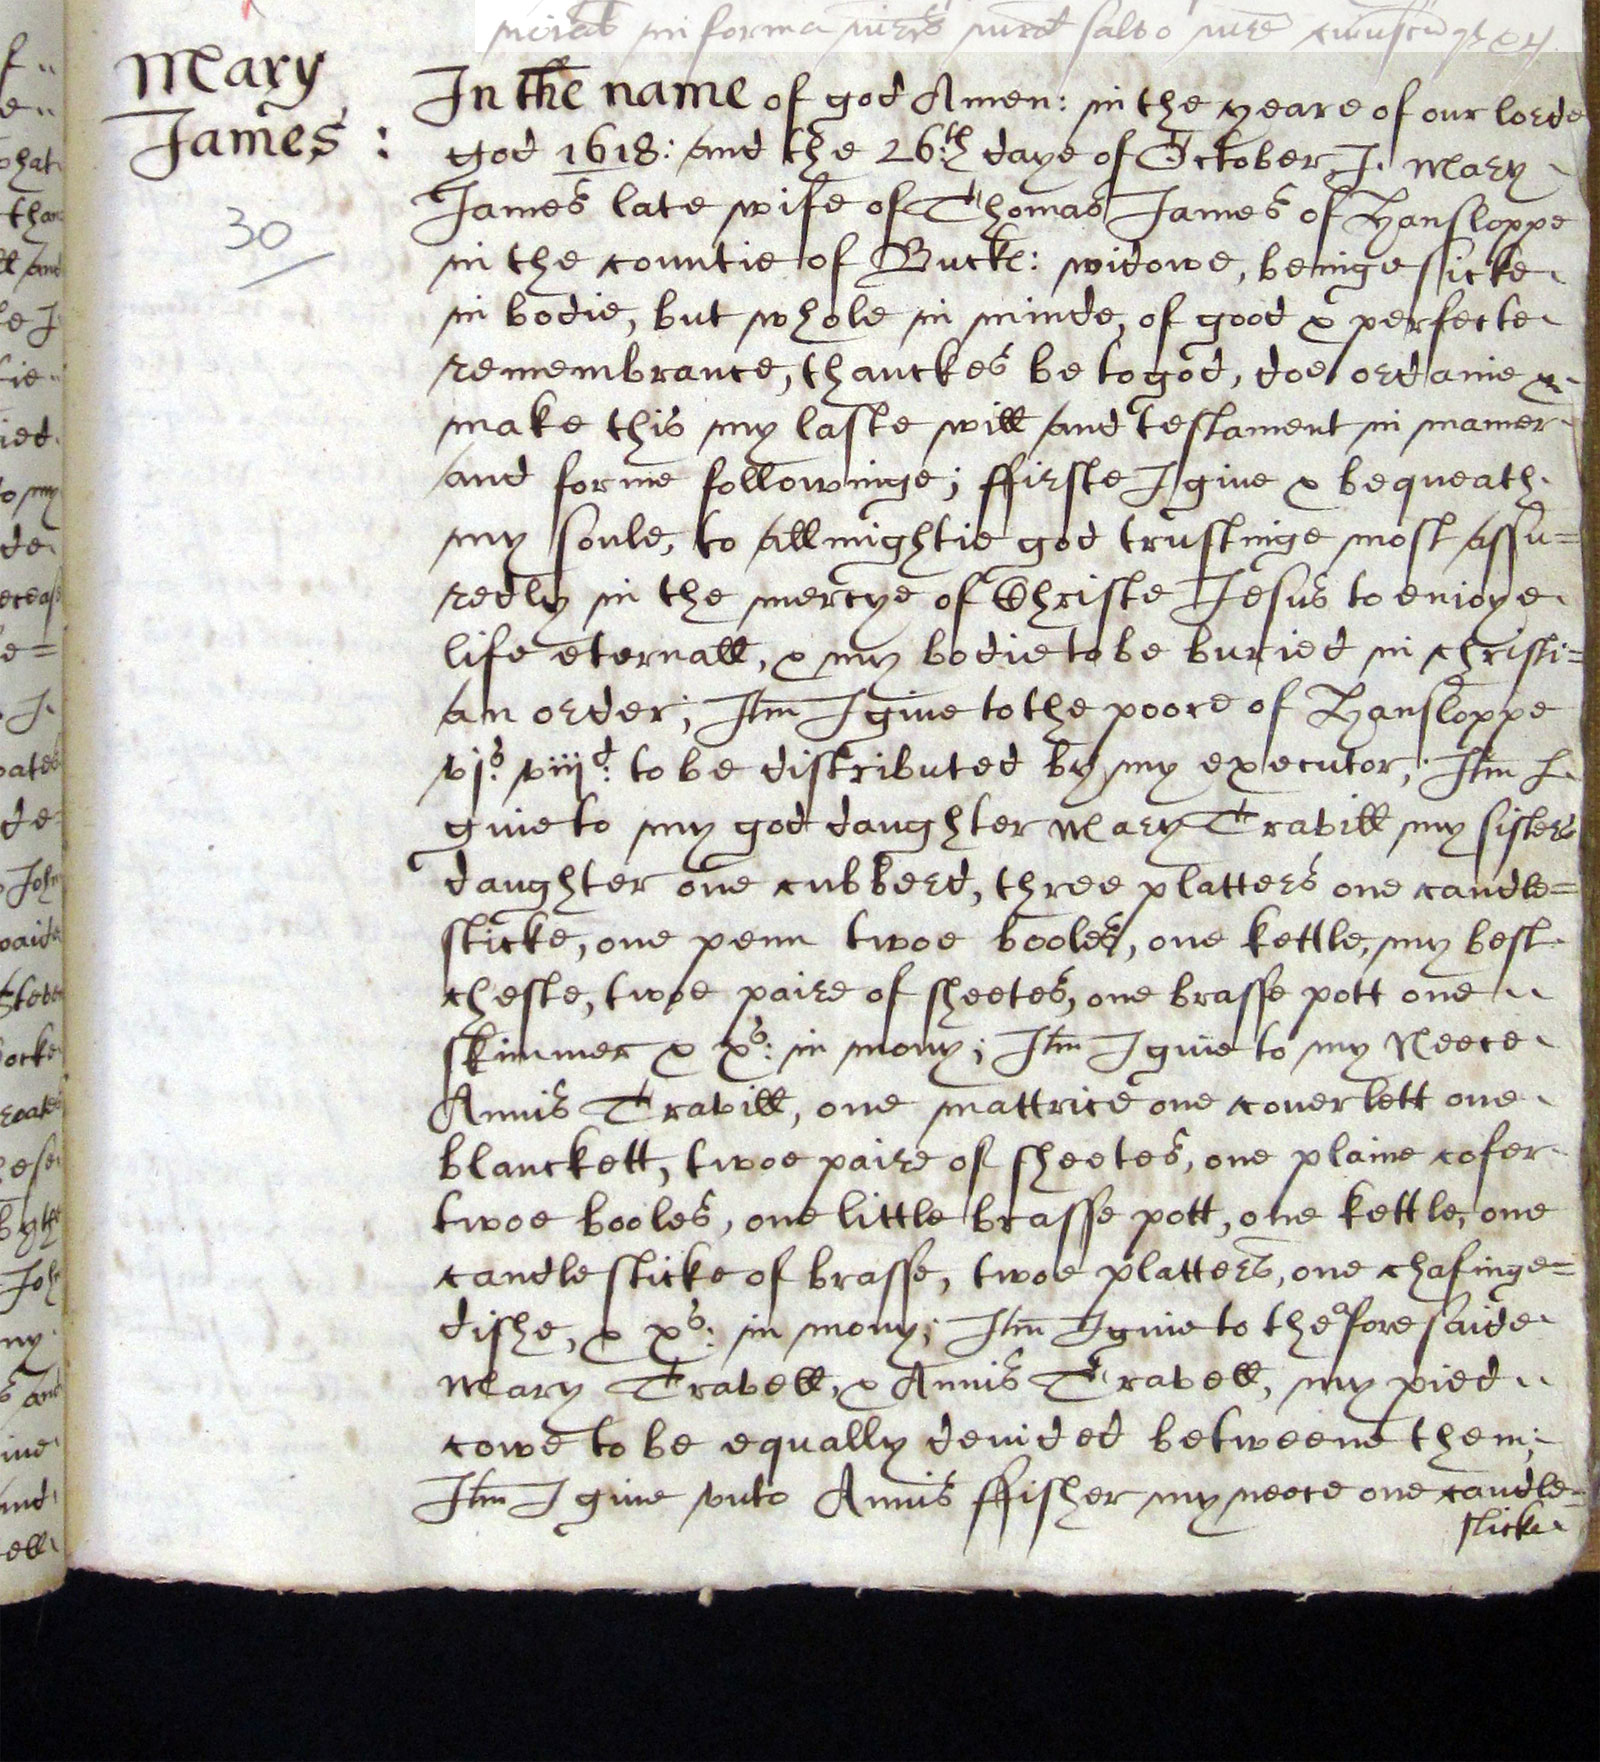 Mary
James :
30
In the name of god Amen: in the yeare of our lorde
god 1618: and the 26th: daye of October, I. Mary
James late wife of Thomas James of Hansloppe
in the countie of Buck: widowe, beinge sicke
in bodie, but whole in minde, of good & perfecte
remembrance, thanckes be to god, doe ordaine &
make this my laste will and testament in maner
and forme followinge; ffirste I give & bequeath
my soule, to allmightie god trustinge most assu=
redly in the mercye of Christe Jesus to enioye
life eternall, & my bodie to be buried in christi=
an order; Itm I give to the poore of Hansloppe
vjs: viijd: to be distributed by my executor, Itm I
give to my god daughter Mary Travill my sisters
daughter one cubberd, three platters one candle=
sticke, one penn twoe booles, one kettle, my best
cheste, twoe paire of sheetes, one brasse pott one
skimmer & xs: in mony; Itm I give to my Neece
Annis Travill, one mattrice one couerlett one
blanckett, twoe paire of sheetes, one plaine cofer
twoe booles, one little brasse pott, one kettle, one
candlesticke of brasse, twoe platters, one chafinge=
dishe, & xs: in mony; Itm I give to the aforesaide
Mary Travell, & Annis Travell, my pied
cowe to be equally deuided betweene them;
Itm I giue vnto Annis ffisher my neece one candle=
sticke